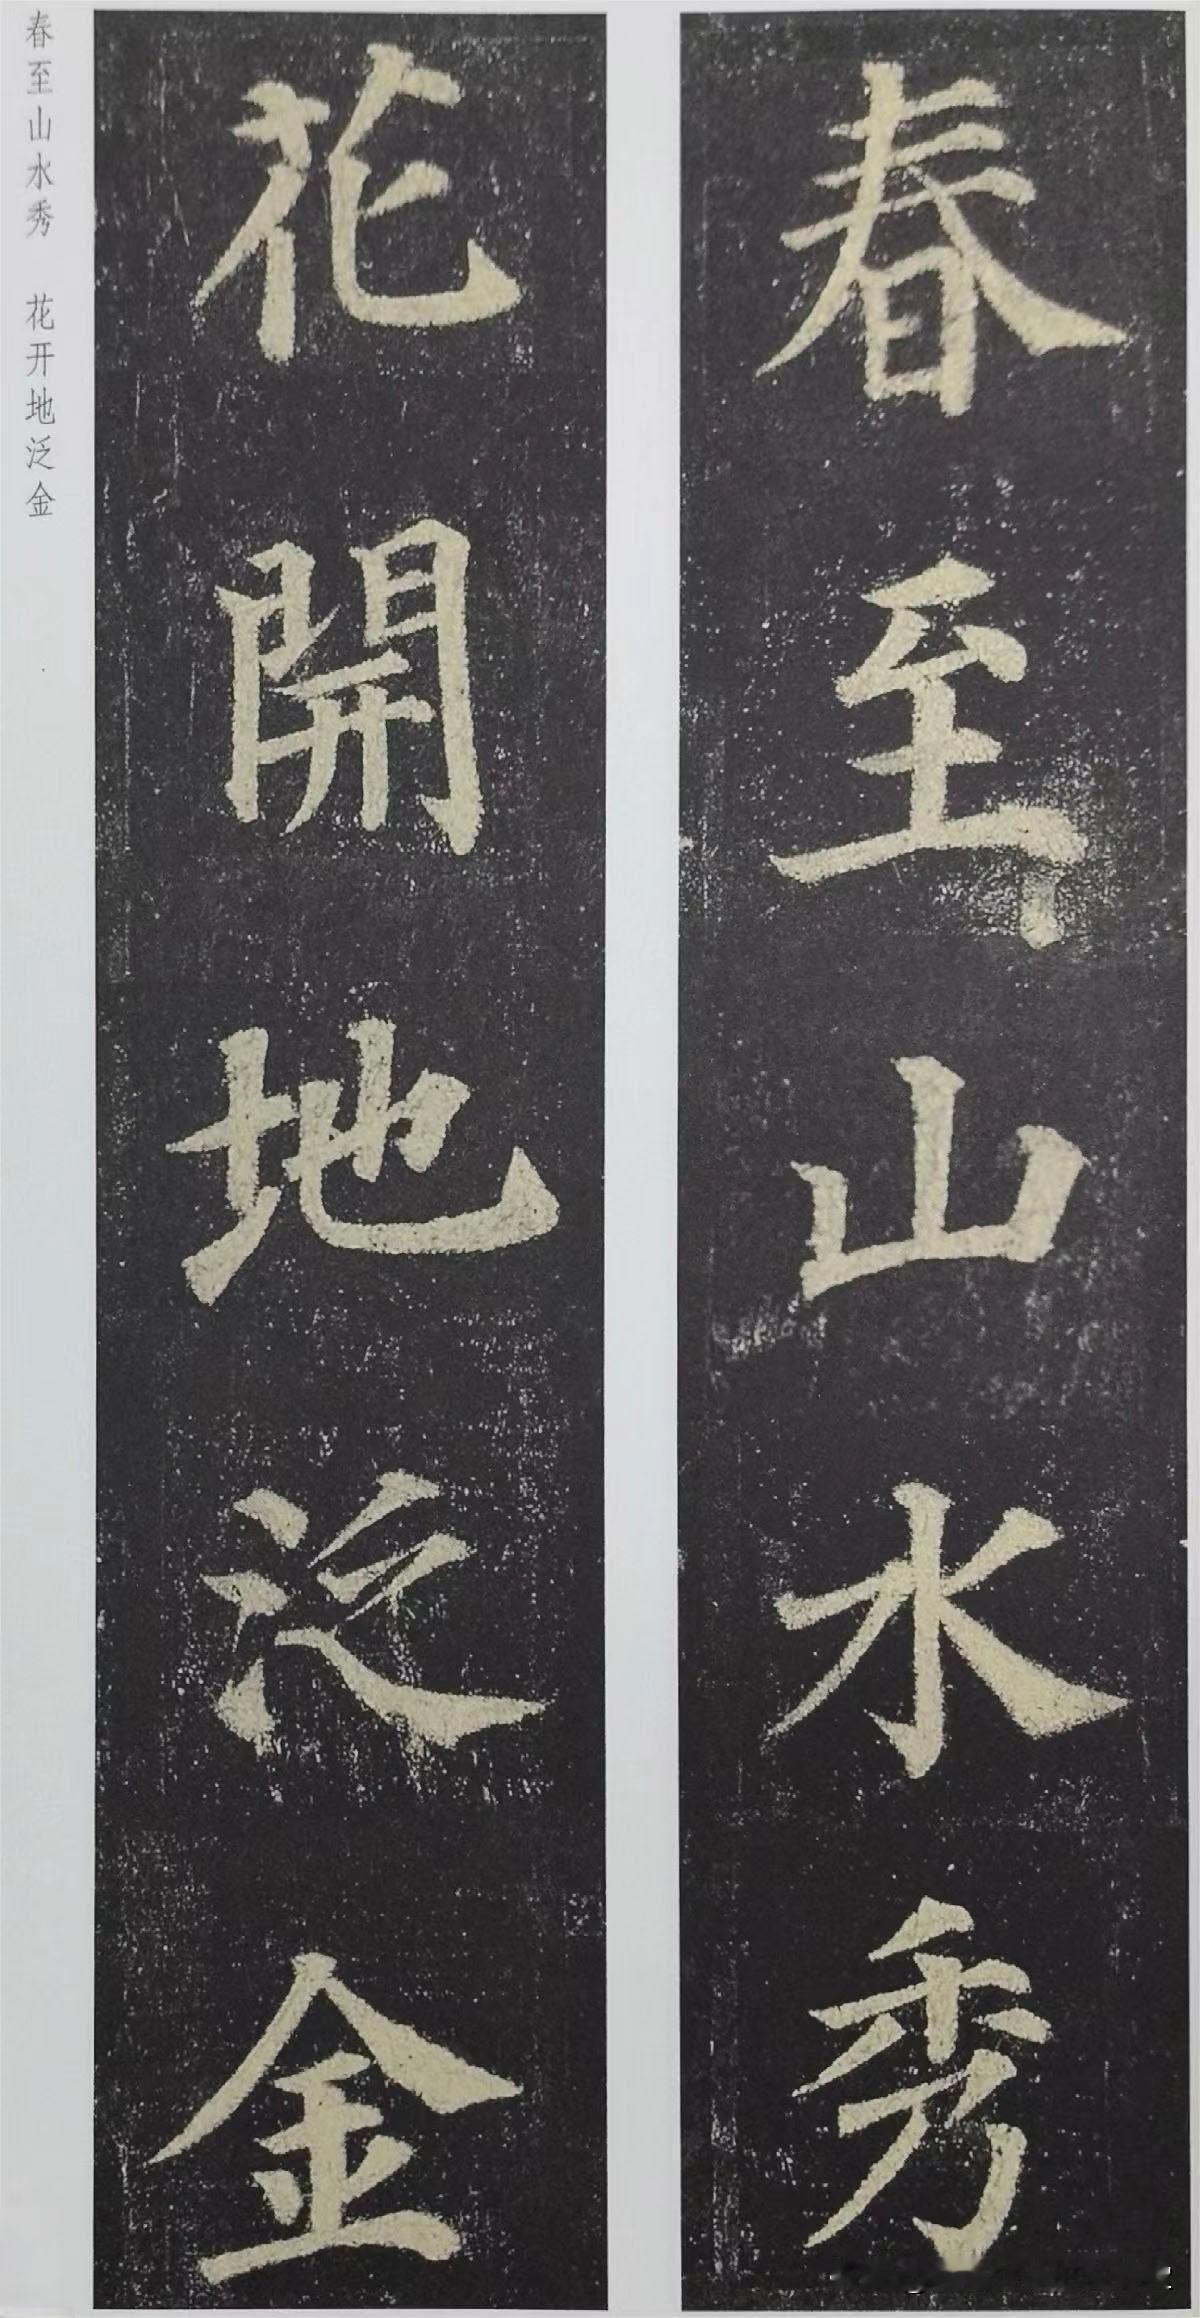 春至山水秀
花開地泛金
春至山水秀 花开地泛金